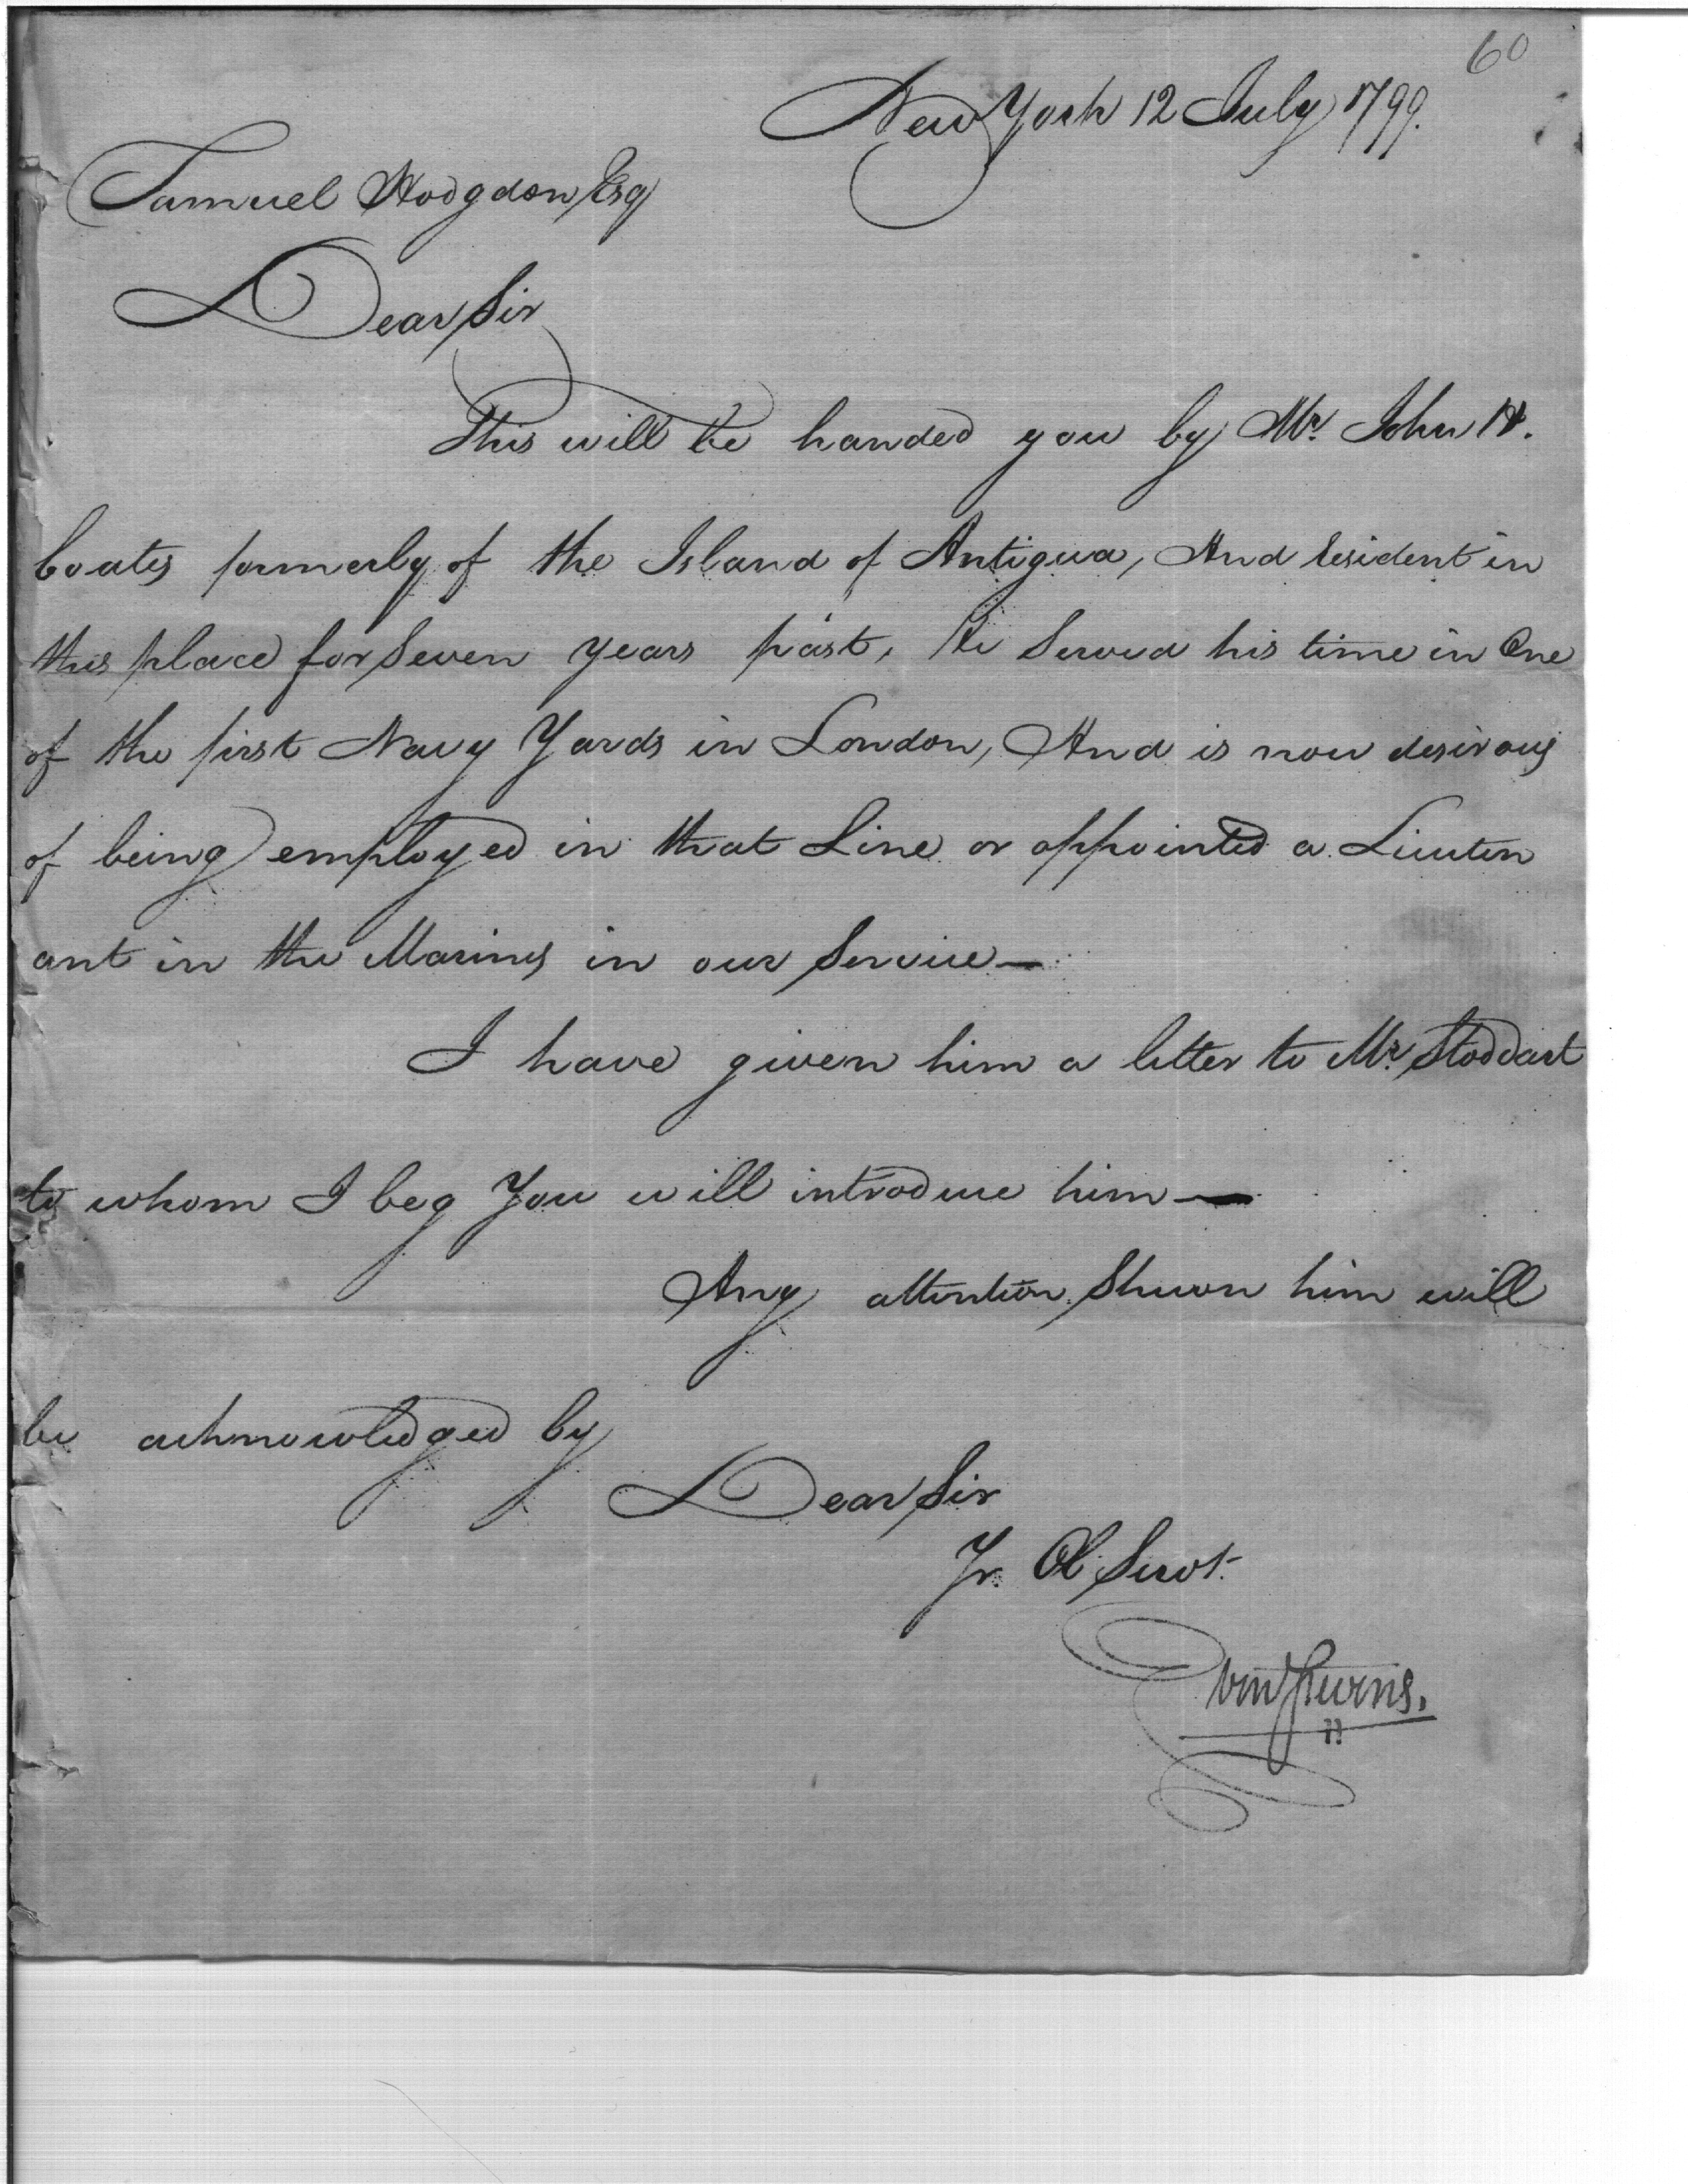 60
New York 12 July 1799.
Samuel Hodgdon Esq
Dear Sir
This will be handed you by Mr. John H.
Coates formerly of the Island of Antigua, And resident in
this place for Seven years past, He Served his time in One
of the first Navy Yards in London, And is now desirous
of being employed in that Line or appointed a Lieuten
ant in the Marines in our Service—
I have given him a letter to Mr. Stoddart
to whom I beg You will introduce him—
Any attention Shewn him will
be acknowledged by
Dear Sir
Yr. Ob Servt.